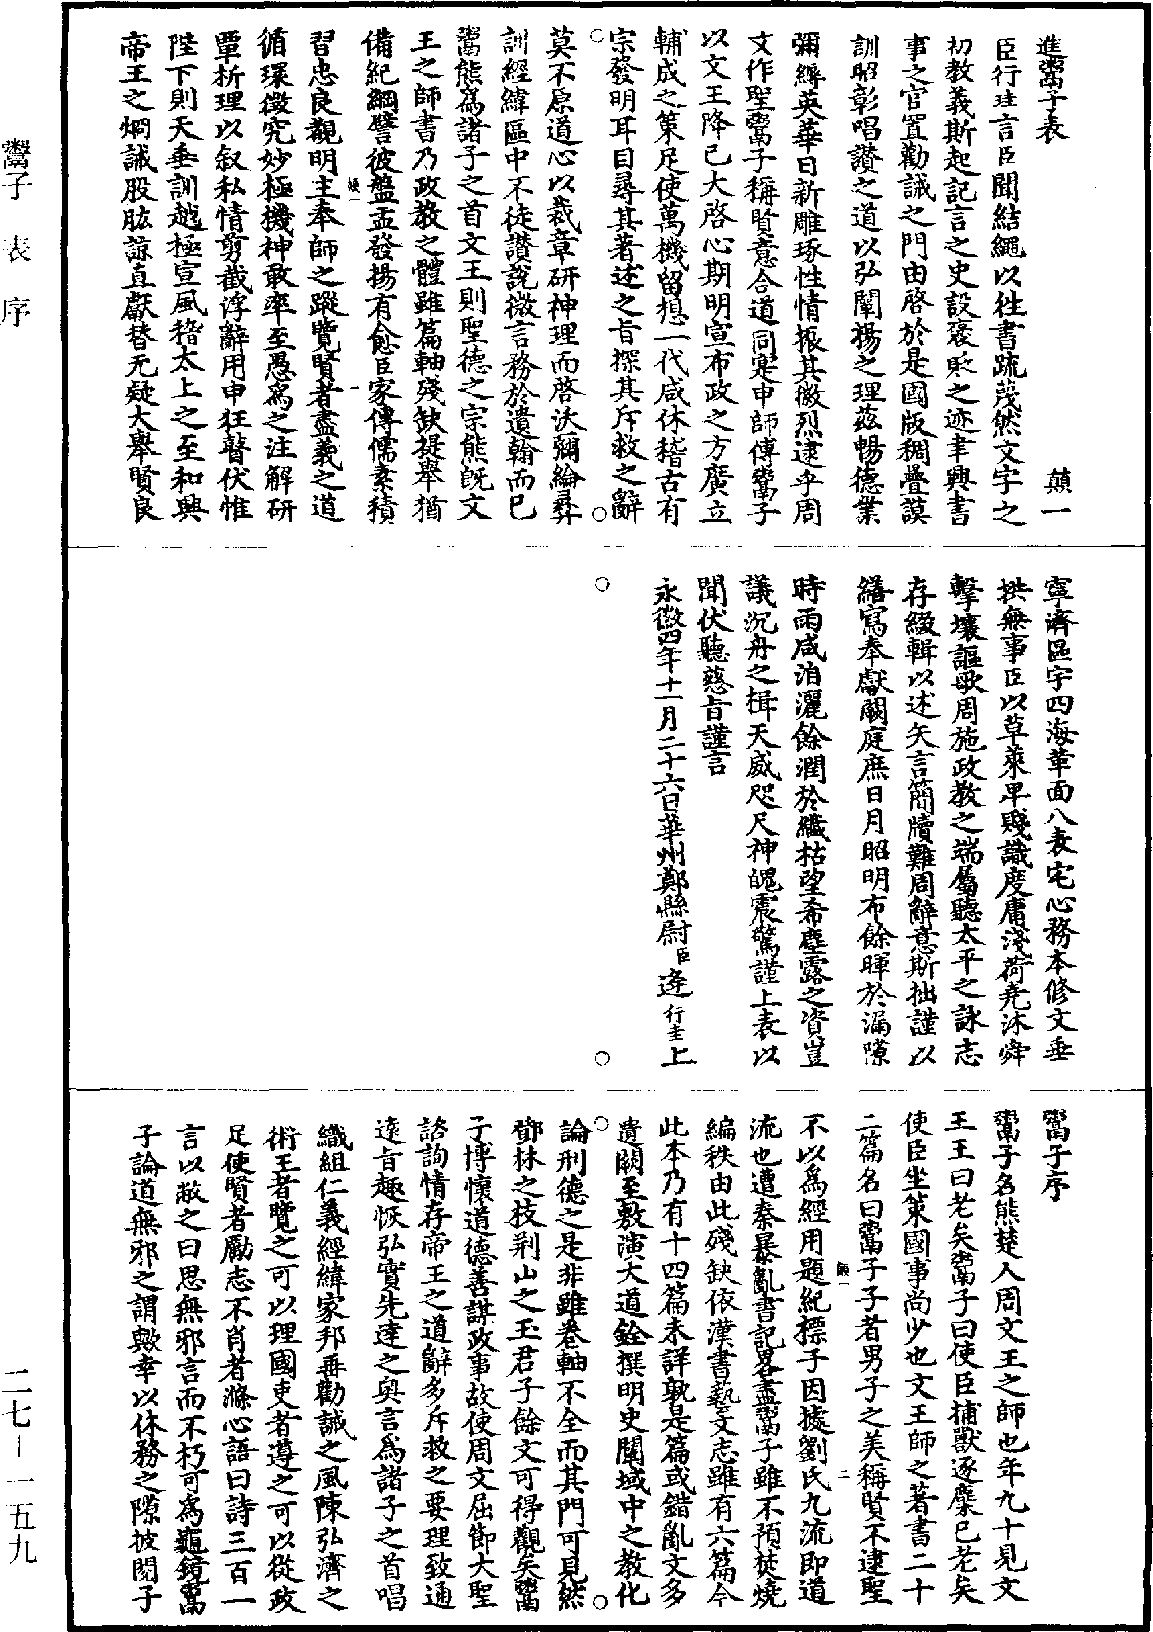 進鬻子表　顛一
臣行珪言臣聞結繩以往書疏蔑然文字之
初教義斯起記言之史設褒貶之迹聿興書
事之官置勸誡之門由啓於是國版稠疊謨
訓昭彰唱讚之道以弘闡揚之理兹暢德業
彌縟英華日新雕琢性情振其徽烈逮乎周
文作聖鬻子稱賢意合道同寔申師傅鬻子
以文王降已大啓心期明宣布政之方廣立
輔成之策足使萬機留想一代咸休稽古有
宗發明耳目尋其著述之旨探其斥救之辭
莫不原道心以裁章研神理而啓沃彌綸彝
訓經緯區中不徒讚說微言務於遺翰而已
鬻熊爲諸子之首文王則聖德之宗熊既文
王之師書乃政教之體雖篇軸殘缺提舉猶
備紀綱譬彼盤盂發揚有愈臣家傳儒素積
習忠良觀明主奉師之蹤覽賢者盡義之道
循環徵究妙極機神敢率至愚爲之注解研
覃析理以叙私情剪截浮辭用申狂瞽伏惟
陛下則天垂訓越極宣風稽太上之至和興
帝王之炯誡股肱諒直獻替无疑大舉賢良
寧濟區宇四海革面八表宅心務本修文垂
拱無事臣以草萊卑賤識度庸淺荷堯沐舜
擊壤謳歌周施政教之端屬聽太平之詠志
存綴輯以述矢言簡牘難周辭意斯拙謹以
繕寫奉獻闕庭庶日月昭明布餘暉於漏隙
時雨咸洎灑餘潤於纖枯望希塵露之資豈
議沉舟之楫天威咫尺神魄震驚謹上表以
聞伏聽慈旨謹言
永徽四年十一月二十六日華州鄭縣尉臣逄行圭上
鬻子序
鬻子名熊楚人周文王之師也年九十見文
王王曰老矣鬻子曰使臣捕獸逐麋已老矣
使臣坐策國事尚少也文王師之著書二十
二篇名曰鬻子子者男子之美稱賢不逮聖
不以爲經用題紀標子因據劉氏九流即道
流也遭秦暴亂書記略盡鬻子雖不預焚燒
編秩由此殘缺依漢書藝文志雖有六篇今
此本乃有十四篇未詳孰是篇或錯亂文多
遺闕至敷演大道銓撰明史闡域中之教化
論刑德之是非雖卷軸不全而其門可見然
鄧林之枝荆山之玉君子餘文可得觀矣鬻
子博懷道德善謀政事故使周文屈節大聖
諮詢情存帝王之道辭多斥救之要理致通
遠旨趣恢弘實先達之奧言爲諸子之首唱
織組仁義經緯家邦再勸誡之風陳弘濟之
術王者覽之可以理國吏者遵之可以從政
足使賢者勵志不肖者滌心語曰詩三百一
言以蔽之曰思無邪言而不朽可爲龜鏡鬻
子論道無邪之謂歟幸以休務之隙披閲子
鬻子　表　序
二七－一五九